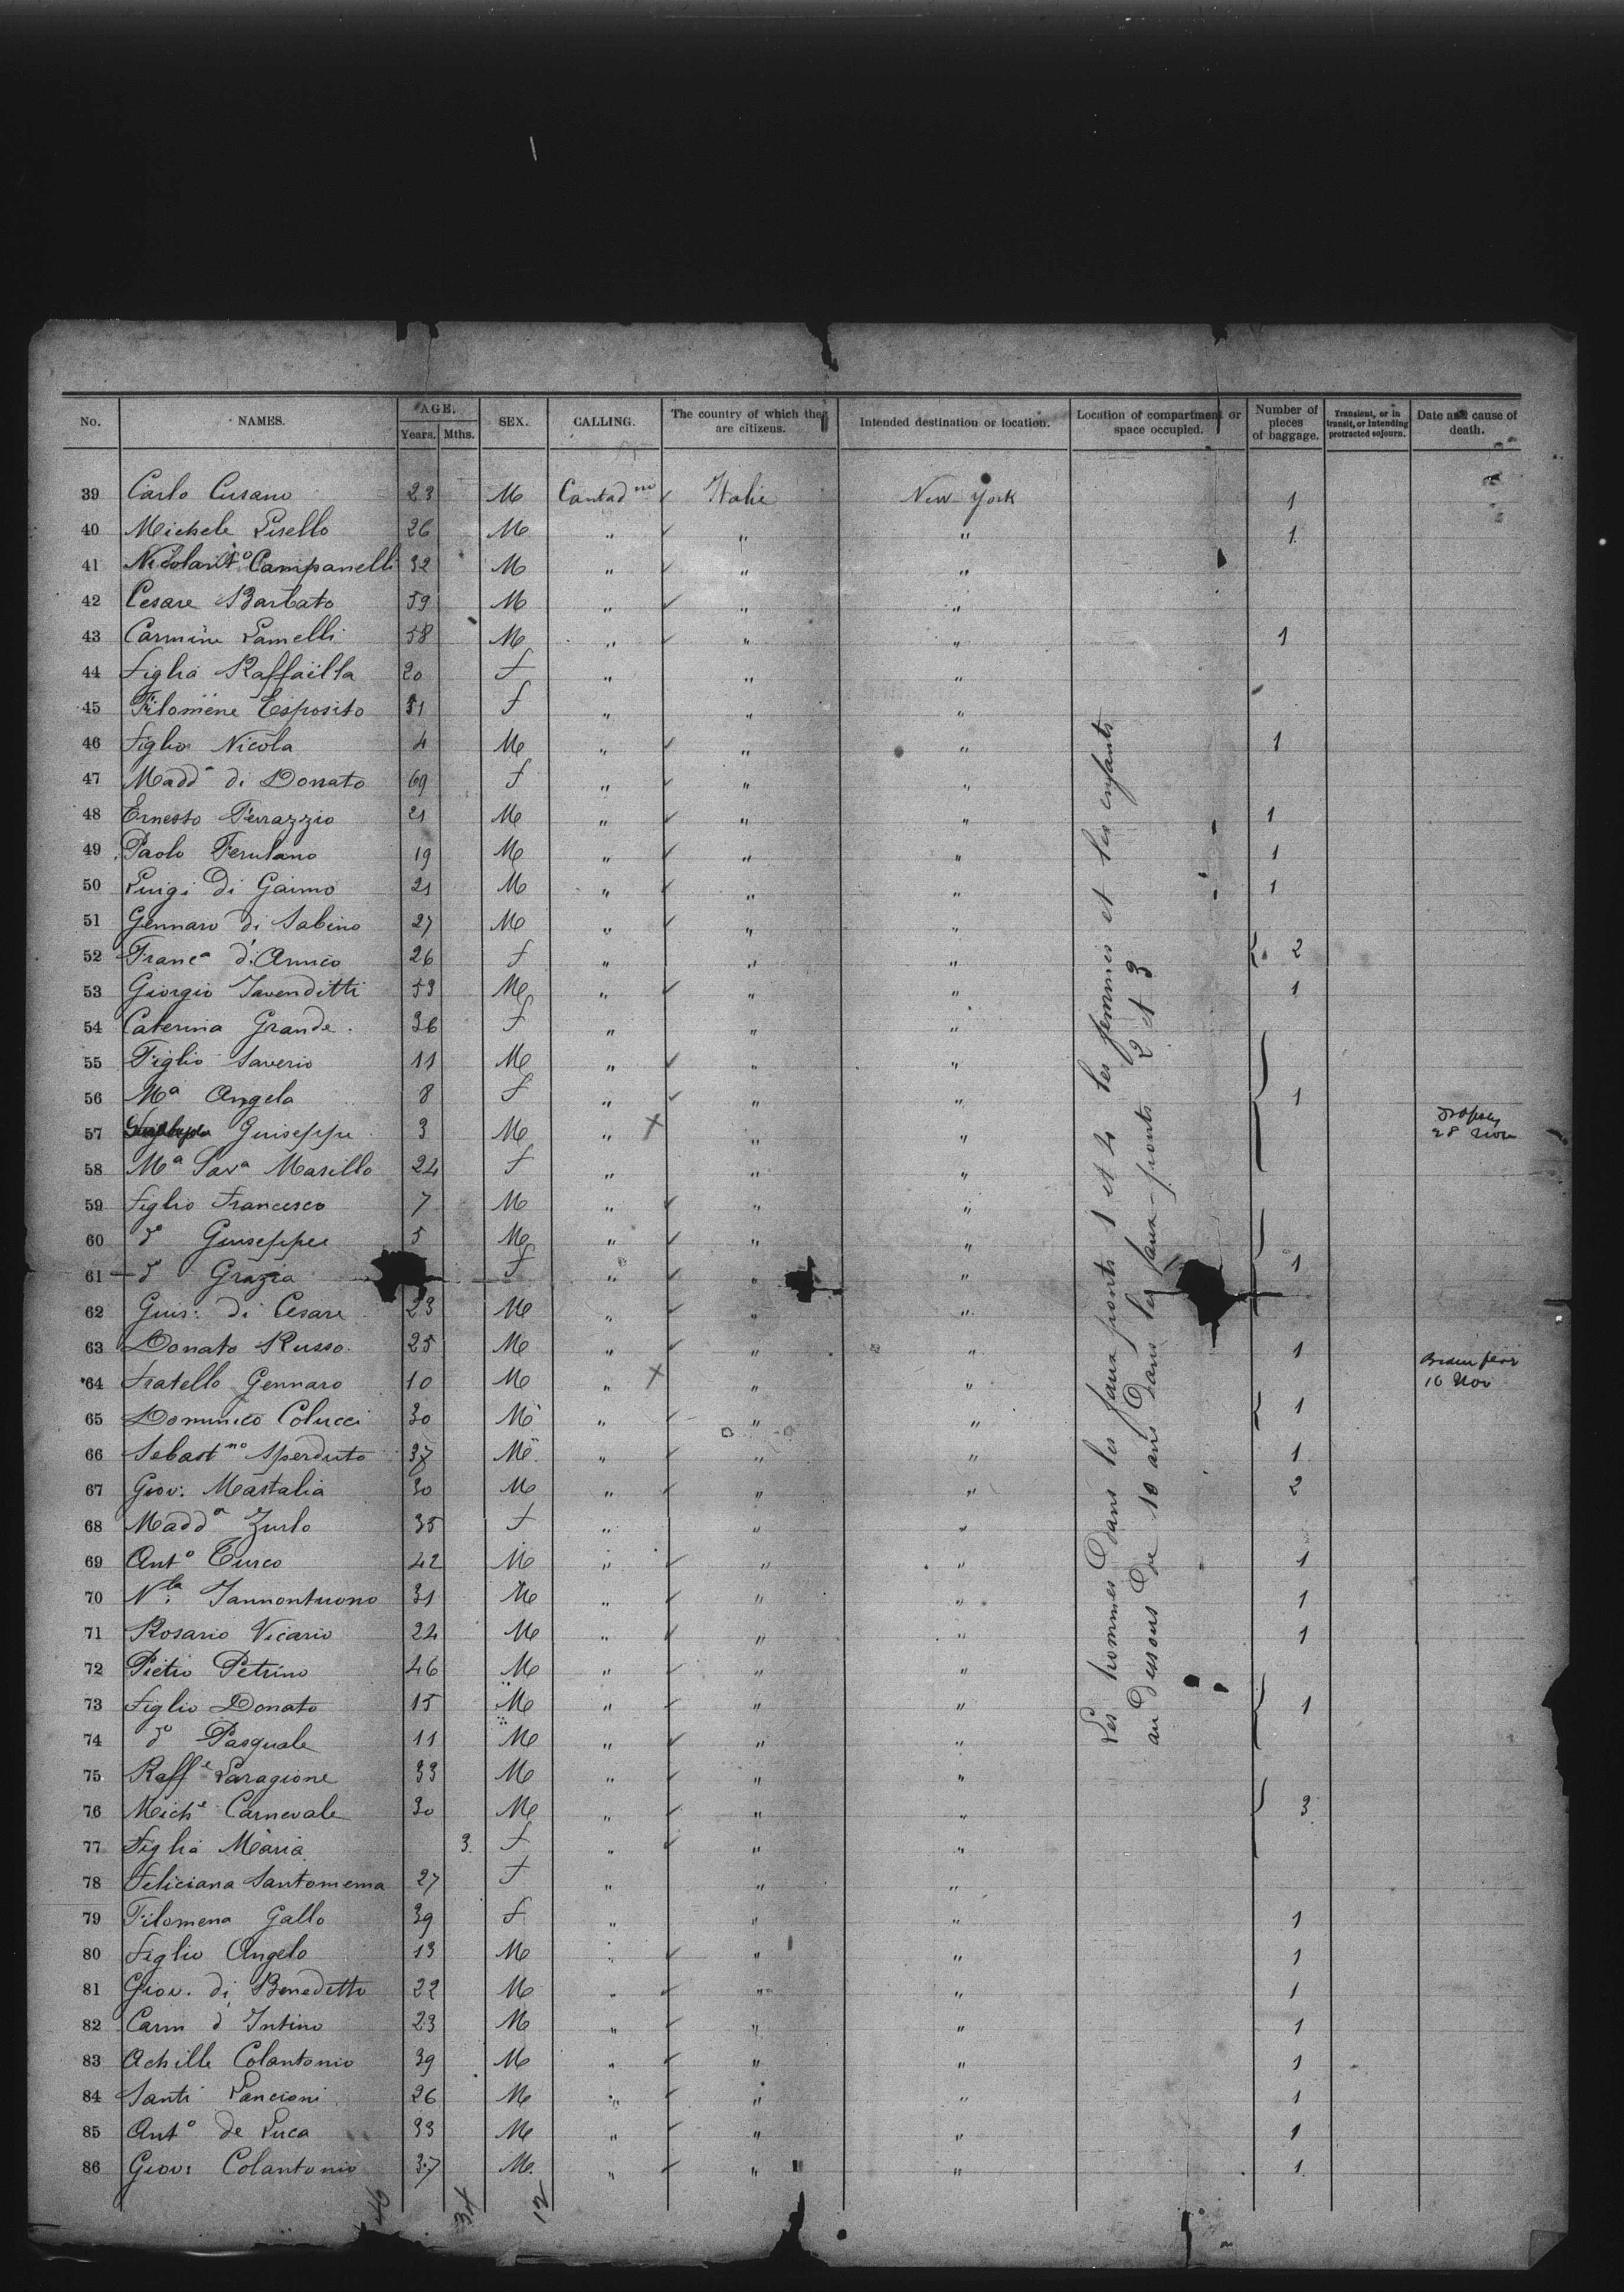 No. NAMES. AGE. Years. Mths. SEX. CALLING. The country of which they are citizens. Intended destination or location. Location of compartment or space occupied. Number of pieces of baggage. Transient, or in transit, or intending protracted sojourn. Date and cause of death.
39 Carlo Cusano 23 M Contad no ✓ Italie New York 1
40 Michele Pisello 26 M " ✓ " " 1
41 Nicolant° Campanelli 32 M " ✓ " "
42 Cesare Barbato 59 M " ✓ " "
43 Carmine Lamelli 58 M " ✓ " " 1
44 Figlia Raffaella 20 f " " "
45 Filomene Esposito 31 f " " "
46 Figlio Nicola 4 M " ✓ " " 1
47 Madd a di Donato 69 f " ✓ " "
48 Ernesto Terrazzio 21 M " ✓ " " 1
49 Paolo Ferulano 19 M " ✓ " " 1
50 Luigi Di Gaimo 21 M " ✓ " " 1
51 Gennaro di Sabino 27 M " ✓ " "
52 Franc a d'Amico 26 f " " " 2
53 Giorgio Iavenditti 53 M " ✓ " " 1
54 Caterina Grande 36 f " " "
55 Figlio Saverio 11 M " ✓ " "
56 M a Angela 8 f " ✓ " " 1
57 Guiseppe 3 M " X " " Dropsy 28 Nov
58 M a Sav a Masillo 24 f " " "
59 Figlio Francesco 7 M " ✓ " "
60 d° Guiseppe 5 M " ✓ " "
61 d° Grazia f " ✓ " " 1
62 Guis: di Cesare 23 M " ✓ " "
63 Donato Russo 25 M " ✓ " " 1
64 Fratello Gennaro 10 M " X " " 16 Nov
65 Dominico Colucci 30 M " ✓ " " 1
66 Sebast no Sperduto 37 M " ✓ " " 1
67 Giov: Mastalia 30 M " ✓ " " 2
68 Madd a Zurlo 35 f " " "
69 Ant° Turco 42 M " ✓ " " 1
70 N la Iannontuono 31 M " ✓ " " 1
71 Rosario Vicario 24 M " ✓ " " 1
72 Pietro Petrino 46 M " ✓ " "
73 Figlio Donato 15 M " ✓ " " 1
74 d° Pasquale 11 M " ✓ " "
75 Raff e Laragione 33 M " ✓ " "
76 Mich e Carnevale 30 M " ✓ " " 3
77 Figlia Maria 3 f " ✓ " "
78 Feliciana Santomema 27 f " " "
79 Filomena Gallo 39 f " " " 1
80 Figlio Angelo 13 M " ✓ " " 1
81 Giov. di Benedetto 22 M " ✓ " " 1
82 Carm d'Intino 23 M " ✓ " " 1
83 Achille Colantonio 39 M " ✓ " " 1
84 Santi Lancioni 26 M " ✓ " " 1
85 Ant° de Luca 33 M " ✓ " " 1
86 Giov: Colantonio 37 M " ✓ " " 1
Les hommes dans les faux ponts 1 et 4 les femmes et les enfants
au dessous de 10 ans dans les faux-ponts 2 et 3